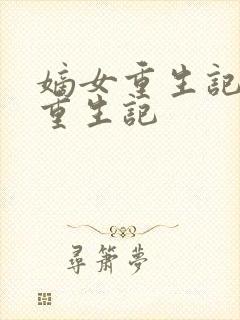 嫡女重生記
重生記
尋簫夢